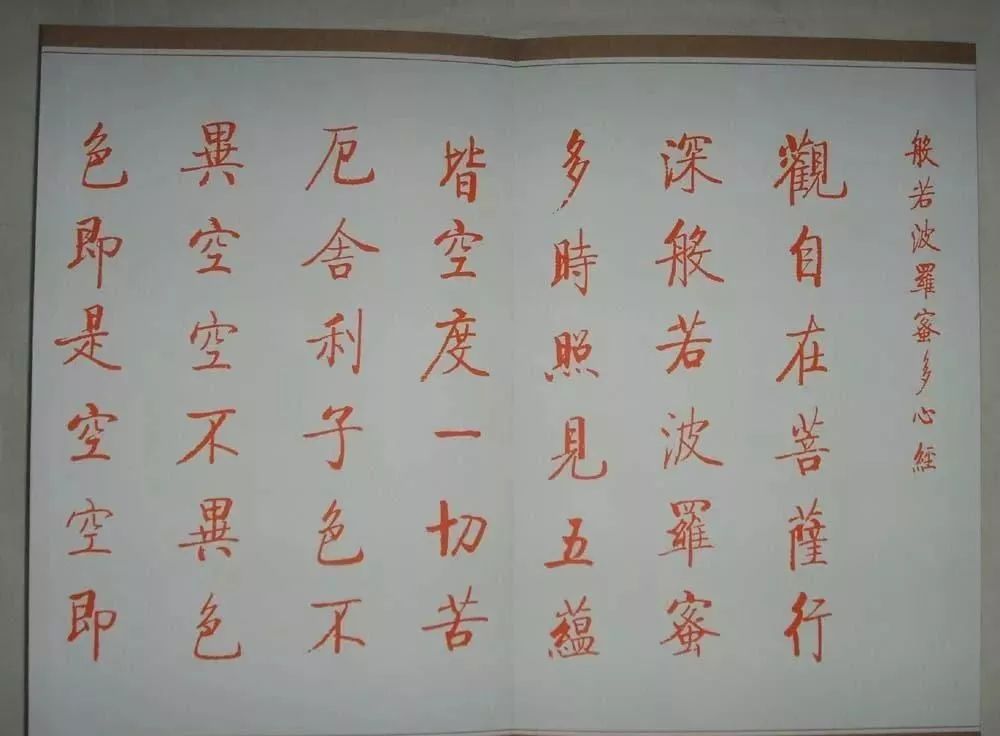 般若波羅蜜多心經
觀自在菩薩行
深般若波羅蜜
多時照見五蘊
皆空度一切苦
厄舍利子色不
異空空不異色
色即是空空即